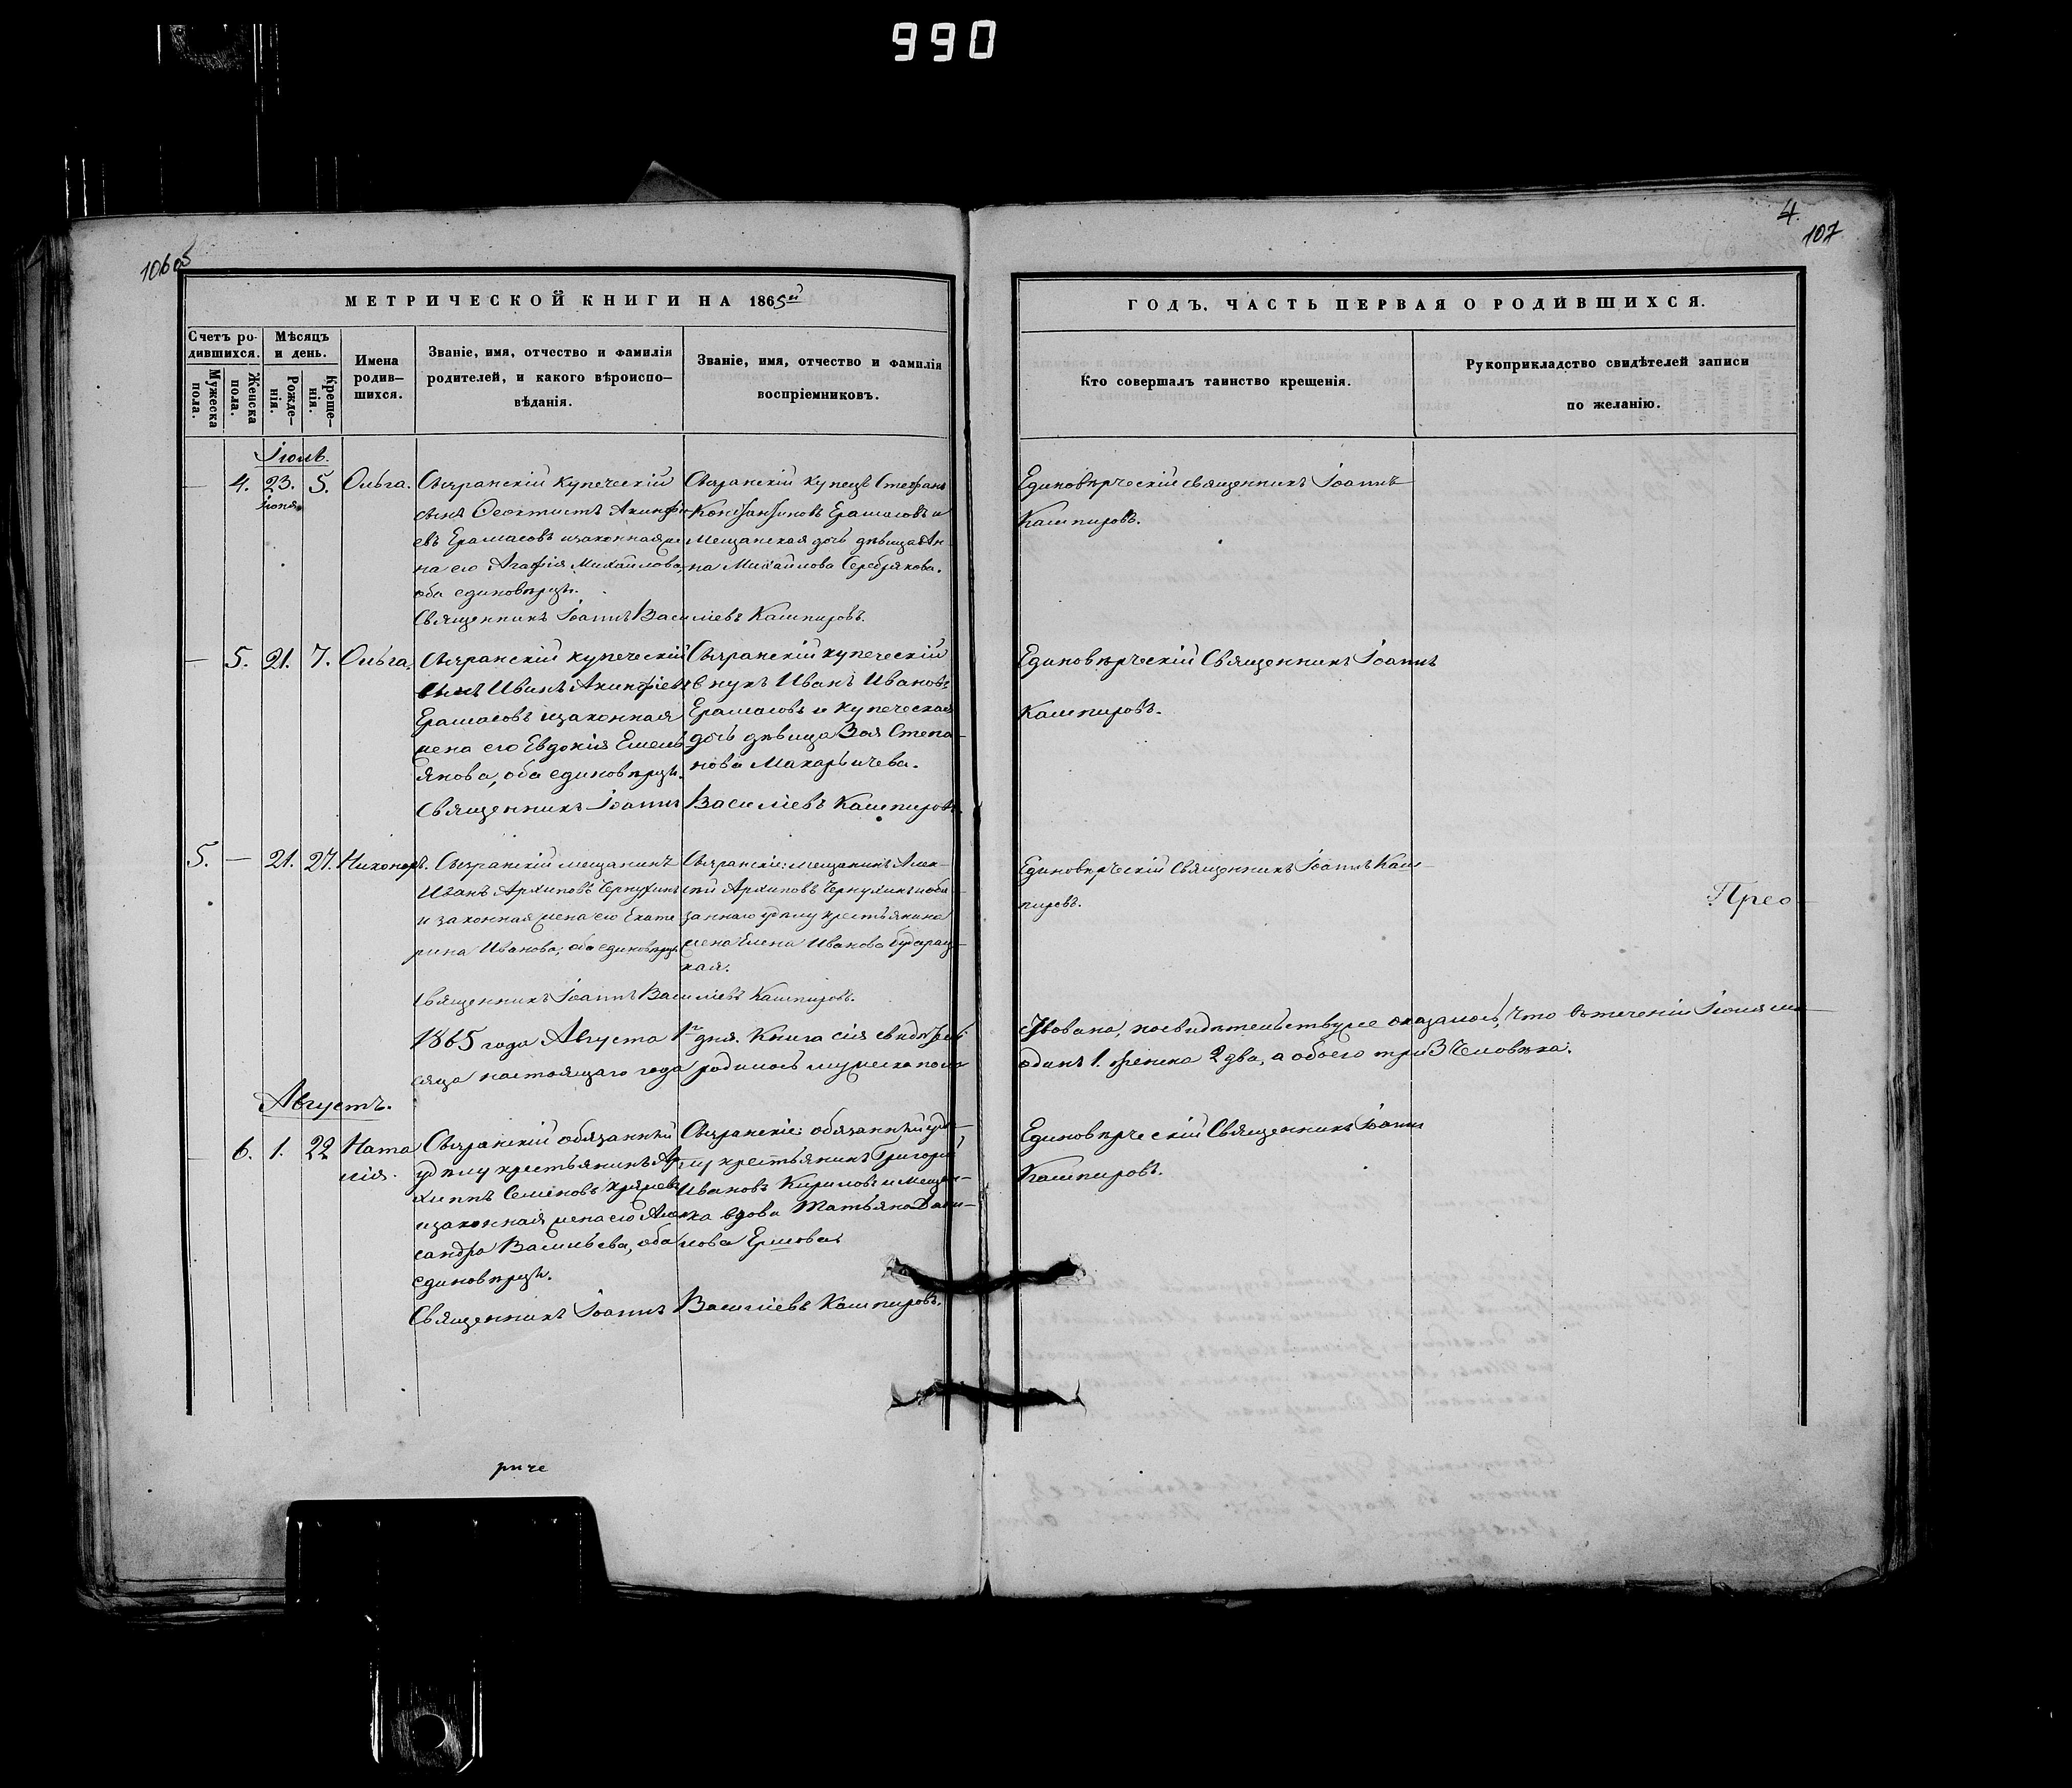 990
106об
4.
107
МЕТРИЧЕСКОЙ КНИГИ НА 1865й
ГОДЪ. ЧАСТЬ ПЕРВАЯ О РОДИВШИХСЯ.
Счетъ ро-
дившихся.
Мужеска
пола.
Женска
пола.
Мѣсяцъ
и день.
Рожде-
нія.
Креще-
нія.
Имена
родив-
шихся.
Званіе, имя, отчество и фамилія
родителей, и какого вѣроиспо-
вѣданія.
Званіе, имя, отчество и фамилія
воспріемниковъ.
Кто совершалъ таинство крещенія.
Рукоприкладство свидѣтелей записи
по желанію.
Іюль.
— 4. 23. 5. Ольга.
Іюня
Сызранскій купеческій
сынъ Ѳеоктистъ Акинфі-
евъ Ерамасовъ и законная же-
на его Агафія Михайлова,
оба единовѣрцы.
Сызранскій купецъ Стефанъ
Константиновъ Ерамасовъ и
Мещанская дочь дѣвица Ан-
на Михайлова Серебрякова.
Священникъ Іоаннъ Василіевъ Кашпировъ.
Единовѣрческій священникъ Іоаннъ
Кашпировъ.
— 5. 21. 7. Ольга.
Сызранскій купеческій
сынъ Иванъ Акинфіевъ
Ерамасовъ и законная
жена его Евдокія Емель-
янова, оба единовѣрцы.
Сызранскій купеческій
внукъ Иванъ Ивановъ
Ерамасовъ и купеческая
дочь дѣвица Зоя Степа-
нова Макарычева.
Священникъ Іоаннъ Василіевъ Кашпировъ.
Единовѣрческій Священникъ Іоаннъ
Кашпировъ.
5. — 21. 27. Никаноръ.
Сызранскій мещанинъ
Иванъ Архиповъ Чернухинъ
и законная жена его Екате
рина Иванова, оба единовѣрцы.
Сызранскіе: мещанинъ Алек-
сѣй Архиповъ Чернухинъ и обя-
заннаго удѣлу крестьянина
жена Елена Иванова
кая.
Священникъ Іоаннъ Василіевъ Кашпировъ.
Единовѣрческій Священникъ Іоаннъ Каш-
пировъ.
Прео-
1865 года Августа 1го дня. Книга сія свидѣтель-
ствована, по свидѣтельству же оказалось, что въ теченіи Іюля мѣ-
сяца настоящаго года родилось мужеска пола
одинъ 1. женска 2 два, а обоего три 3 Человѣка.
Августъ.
— 6. 1. 22 Ната
лія.
Сызранскій обязанный
удѣлу крестьянинъ Ар-
хиппъ Семеновъ
и законная жена его Алек
сандра Васильева, оба
единовѣрцы.
Сызранскіе: обязанный удѣ-
лу крестьянинъ Григорій
Ивановъ Кириловъ и мещан-
ка вдова Татьяна Дани-
лова Ершова.
Священникъ Іоаннъ Василіевъ Кашпировъ.
Единовѣрческій Священникъ Іоаннъ
Кашпировъ.